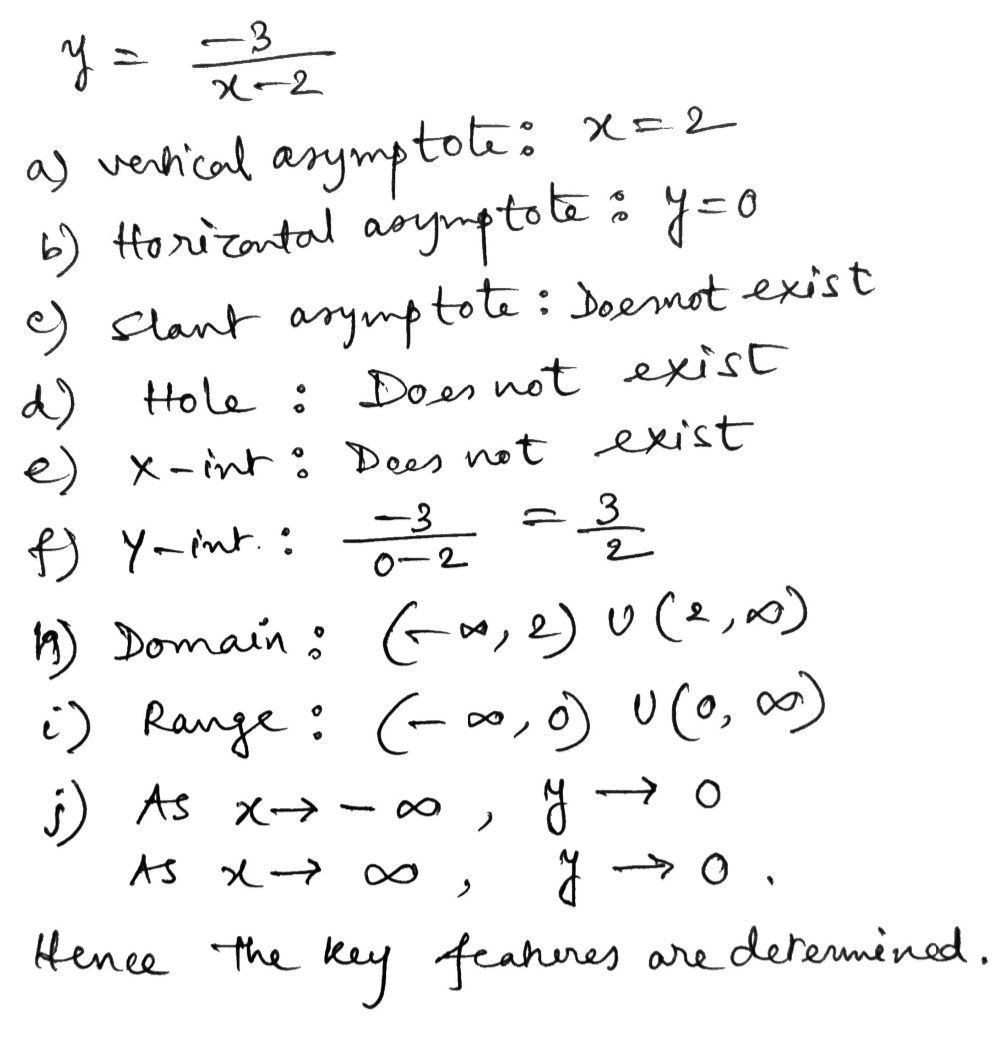 y = -3/(x-2)
a) vertical asymptote: x = 2
b) Horizontal asymptote: y = 0
c) Slant asymptote: Does not exist
d) Hole: Does not exist
e) X-int: Does not exist
f) Y-int.: -3/(0-2) = 3/2
h) Domain: (-∞, 2) ∪ (2, ∞)
i) Range: (-∞, 0) ∪ (0, ∞)
j) As x → -∞, y → 0
As x → ∞, y → 0.
Hence the key features are determined.